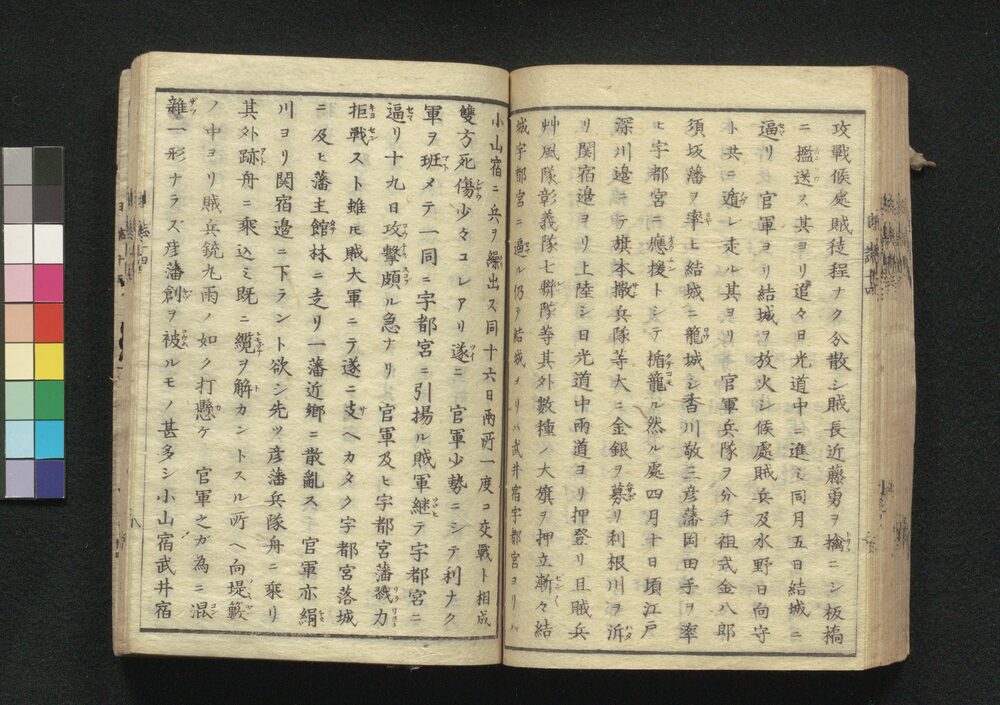 攻戦候處賊徒程ナク分散シ賊長近藤勇ヲ擒ニシ板橋
ニ檻送ス其ヨリ追々日光道中ニ進ミ同月五日結城ニ
逼リ 官軍ヨリ結城ヲ放火シ候處賊兵及水野日向守
ト共ニ遁レ走ル其ヨリ 官軍兵隊ヲ分チ祖式金八郎
須坂藩ヲ率ヒ結城ニ籠城シ香川敬三彦藩岡田手ヲ率
ヒ宇都宮ニ應援トシテ楯籠ル然ル處四月十日頃江戸
深川邉ニテ旗本撒兵隊等大ニ金銀ヲ募リ利根川ヲ泝
リ関宿邉ヨリ上陸シ日光道中両道ヨリ押登リ且賊兵
艸風隊彰義隊七聨隊等其外數種ノ大旗ヲ押立漸々結
城宇都宮ニ逼ル仍テ結城ヨリハ武井宿宇都宮ヨリハ
小山宿ニ兵ヲ繰出ス同十六日両所一度コ交戰ト相成
雙方死傷少々コレアリ遂ニ 官軍少勢ニシテ利ナク
軍ヲ班メテ一同ニ宇都宮ニ引揚ル賊軍継テ宇都宮ニ
逼リ十九日攻撃頗ル急ナリ 官軍及ヒ宇都宮藩戮力
拒戰スト雖モ賊大軍ニテ遂ニ支ヘカタク宇都宮落城
ニ及ヒ藩主館林ニ走リ一藩近郷ニ散亂ス 官軍亦絹
川ヨリ関宿邉ニ下ラント欲シ先ツ彦藩兵隊舟ニ乗リ
其外跡舟ニ乗込ミ既ニ纜ヲ解カントスル所ヘ向堤藪
ノ中ヨリ賊兵銃丸雨ノ如ク打懸ケ 官軍之カ為ニ混
雜一形ナラズ彦藩創ヲ被ルモノ甚多シ小山宿武井宿